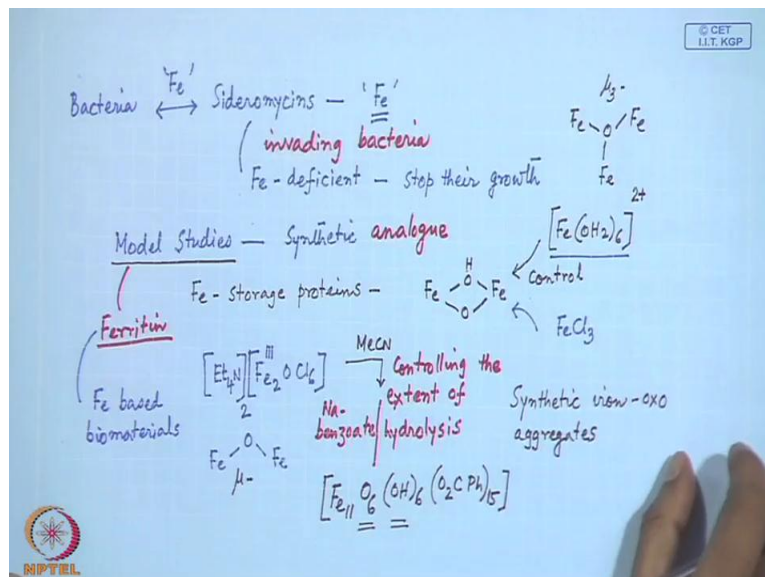 © CET
I.I.T. KGP
'Fe'
Bacteria ⟷ Sideromycins — 'Fe'
invading bacteria
Fe-deficient — stop their growth
μ3-
Fe O Fe
Fe
Model Studies — Synthetic analogue
[Fe(OH2)6]2+
Control
Fe-storage proteins — Fe H O O Fe
FeCl3
Ferritin
Fe based
biomaterials
[Et4N]2[FeIII2OCl6]
MeCN
Controlling the
extent of
hydrolysis
Na-
benzoate
Fe O Fe
μ-
Synthetic iron-oxo
aggregates
[Fe11 O6 (OH)6 (O2CPh)15]
NPTEL